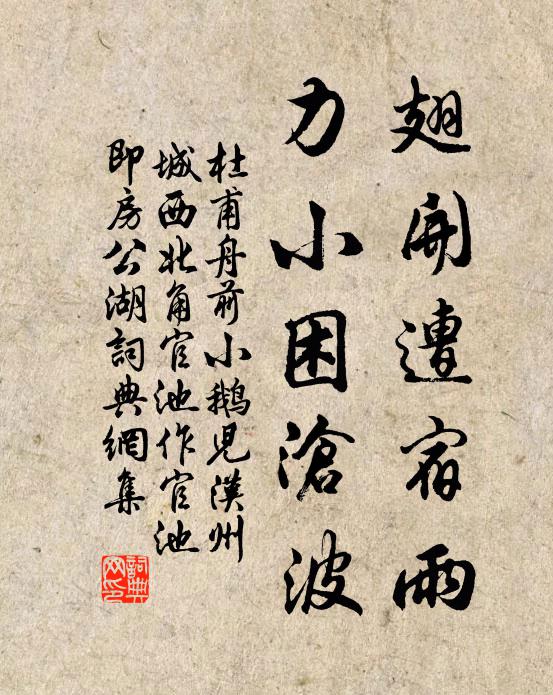 翅開遭宿雨
力小困滄波
杜甫舟前小鵝兒漢州
城西北角官池作官池
即房公湖詞典網集
詞典網印